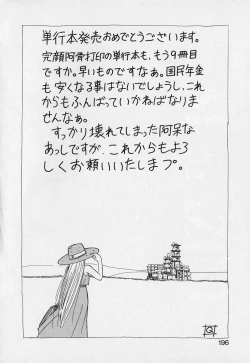 単行本発売おめでとうございます。
完顔阿骨打印の単行本も、もう9冊目
ですか。早いものですなぁ。国民年金
も安くなる事はないでしょうし、これ
からもふんばっていかねばなりま
せんなぁ。
すっかり壊れてしまった阿呆な
あっしですが、これからもよろ
しくお頼いいたしまプ。
196